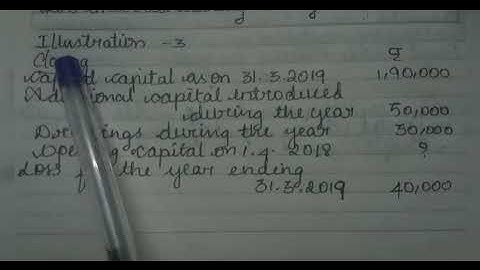 Illustration - 3
₹
Closing
capital as on 31.3.2019 1,90,000
Additional capital introduced
during the year 50,000
Drawings during the year 30,000
Opening Capital on 1.4.2018 ?
Loss for the year ending
31.3.2019 40,000